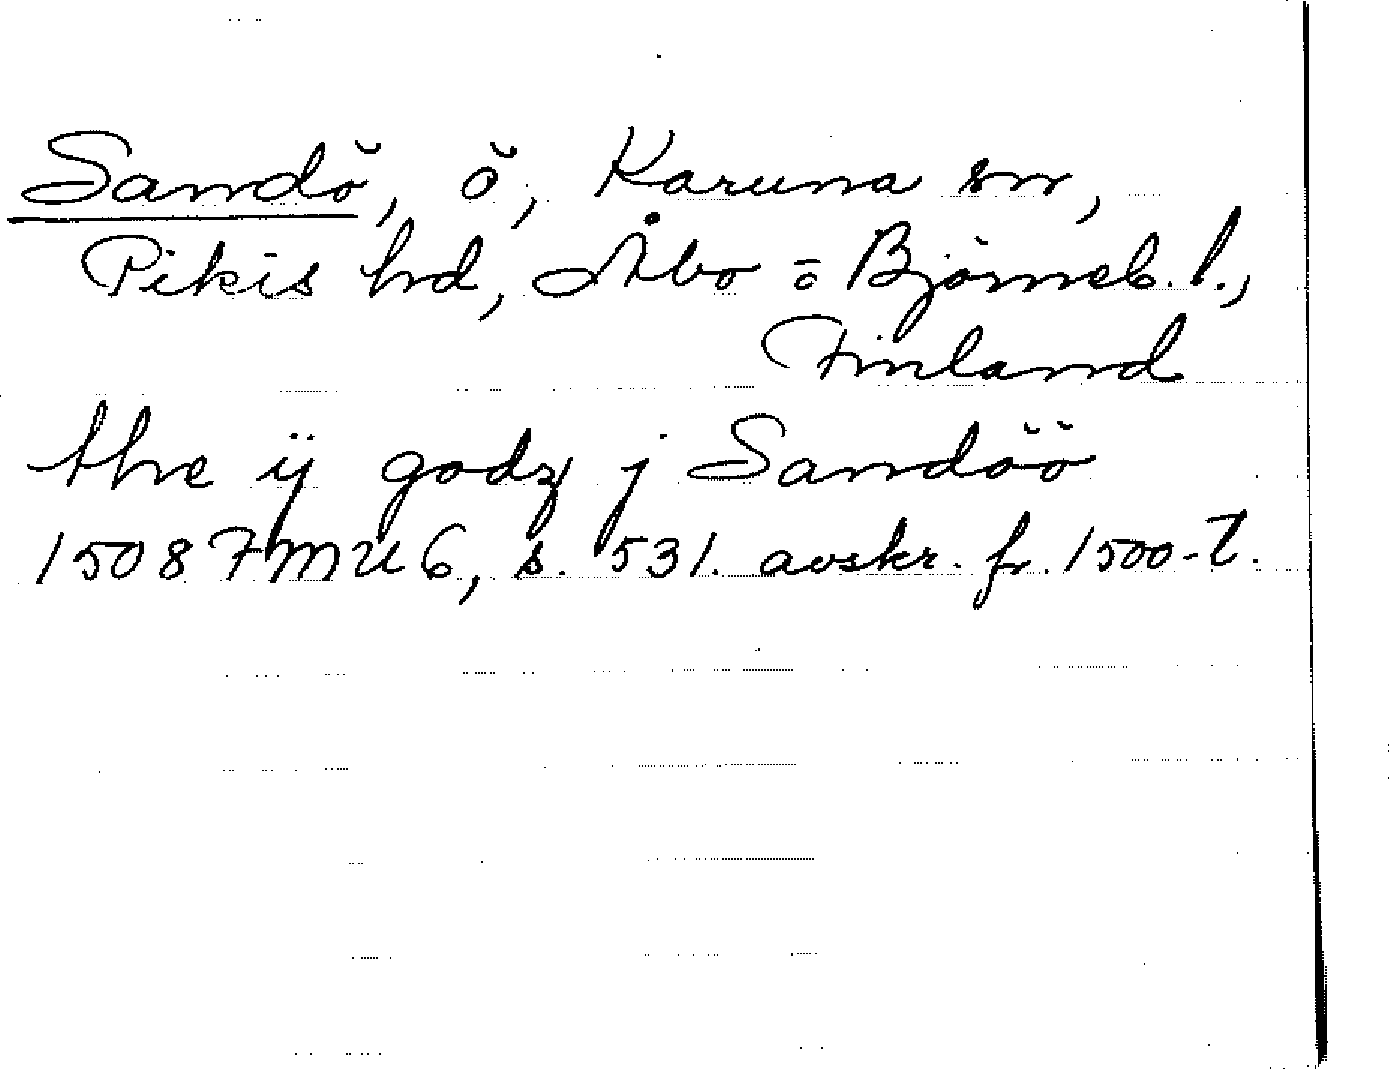 Sandö, ö, Karuna sn,
Pikis hd, Åbo = Björneb. l.,
Finland
thre ij godz j Sandöö
1508 FMU 6, s. 531. avskr. fr. 1500-t.